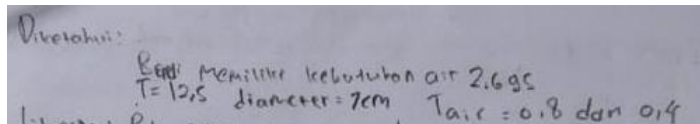 Diketahui:
Memiliki kebutuhan air 2.695
T = 12,5 diameter = 7cm Tair = 0,8 dan 0,4